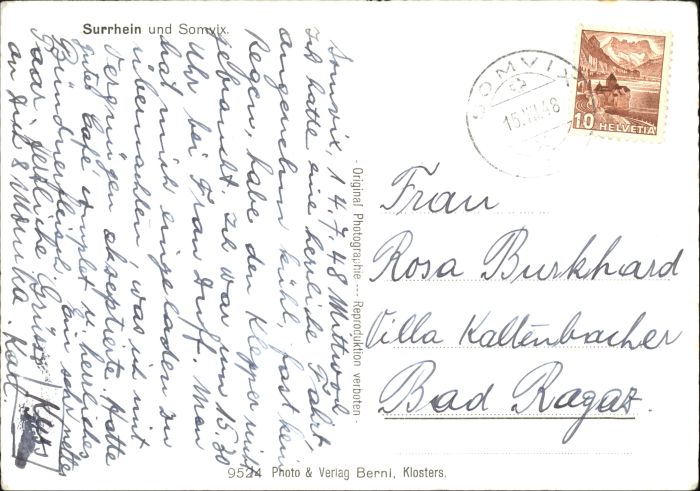 Surrhein und Somvix.
Somvix, 14.7.48 Mittwoch
Ich hatte eine herrliche Fahrt
angenehm kühl, fast kein
Regen, habe den Klepper nicht
gebraucht. Ich war um 15.30
Uhr bei Frau Duff. Man
hat mich eingeladen zu
übernachten, was ich mit
Vergnügen akzeptierte. Hatte
guten Café complet u. herrliches
Bündnerfleisch. Ein schmettes
Paar herzliche Grüsse
an Dich & Monika. Kat.
Kuss
- Original Photographie --- Reproduktion verboten -
SOMVIX
15.VII.48
10 HELVETIA
Frau
Rosa Burkhard
Villa Kaltenbacher
Bad Ragaz.
9524 Photo & Verlag Berni, Klosters.